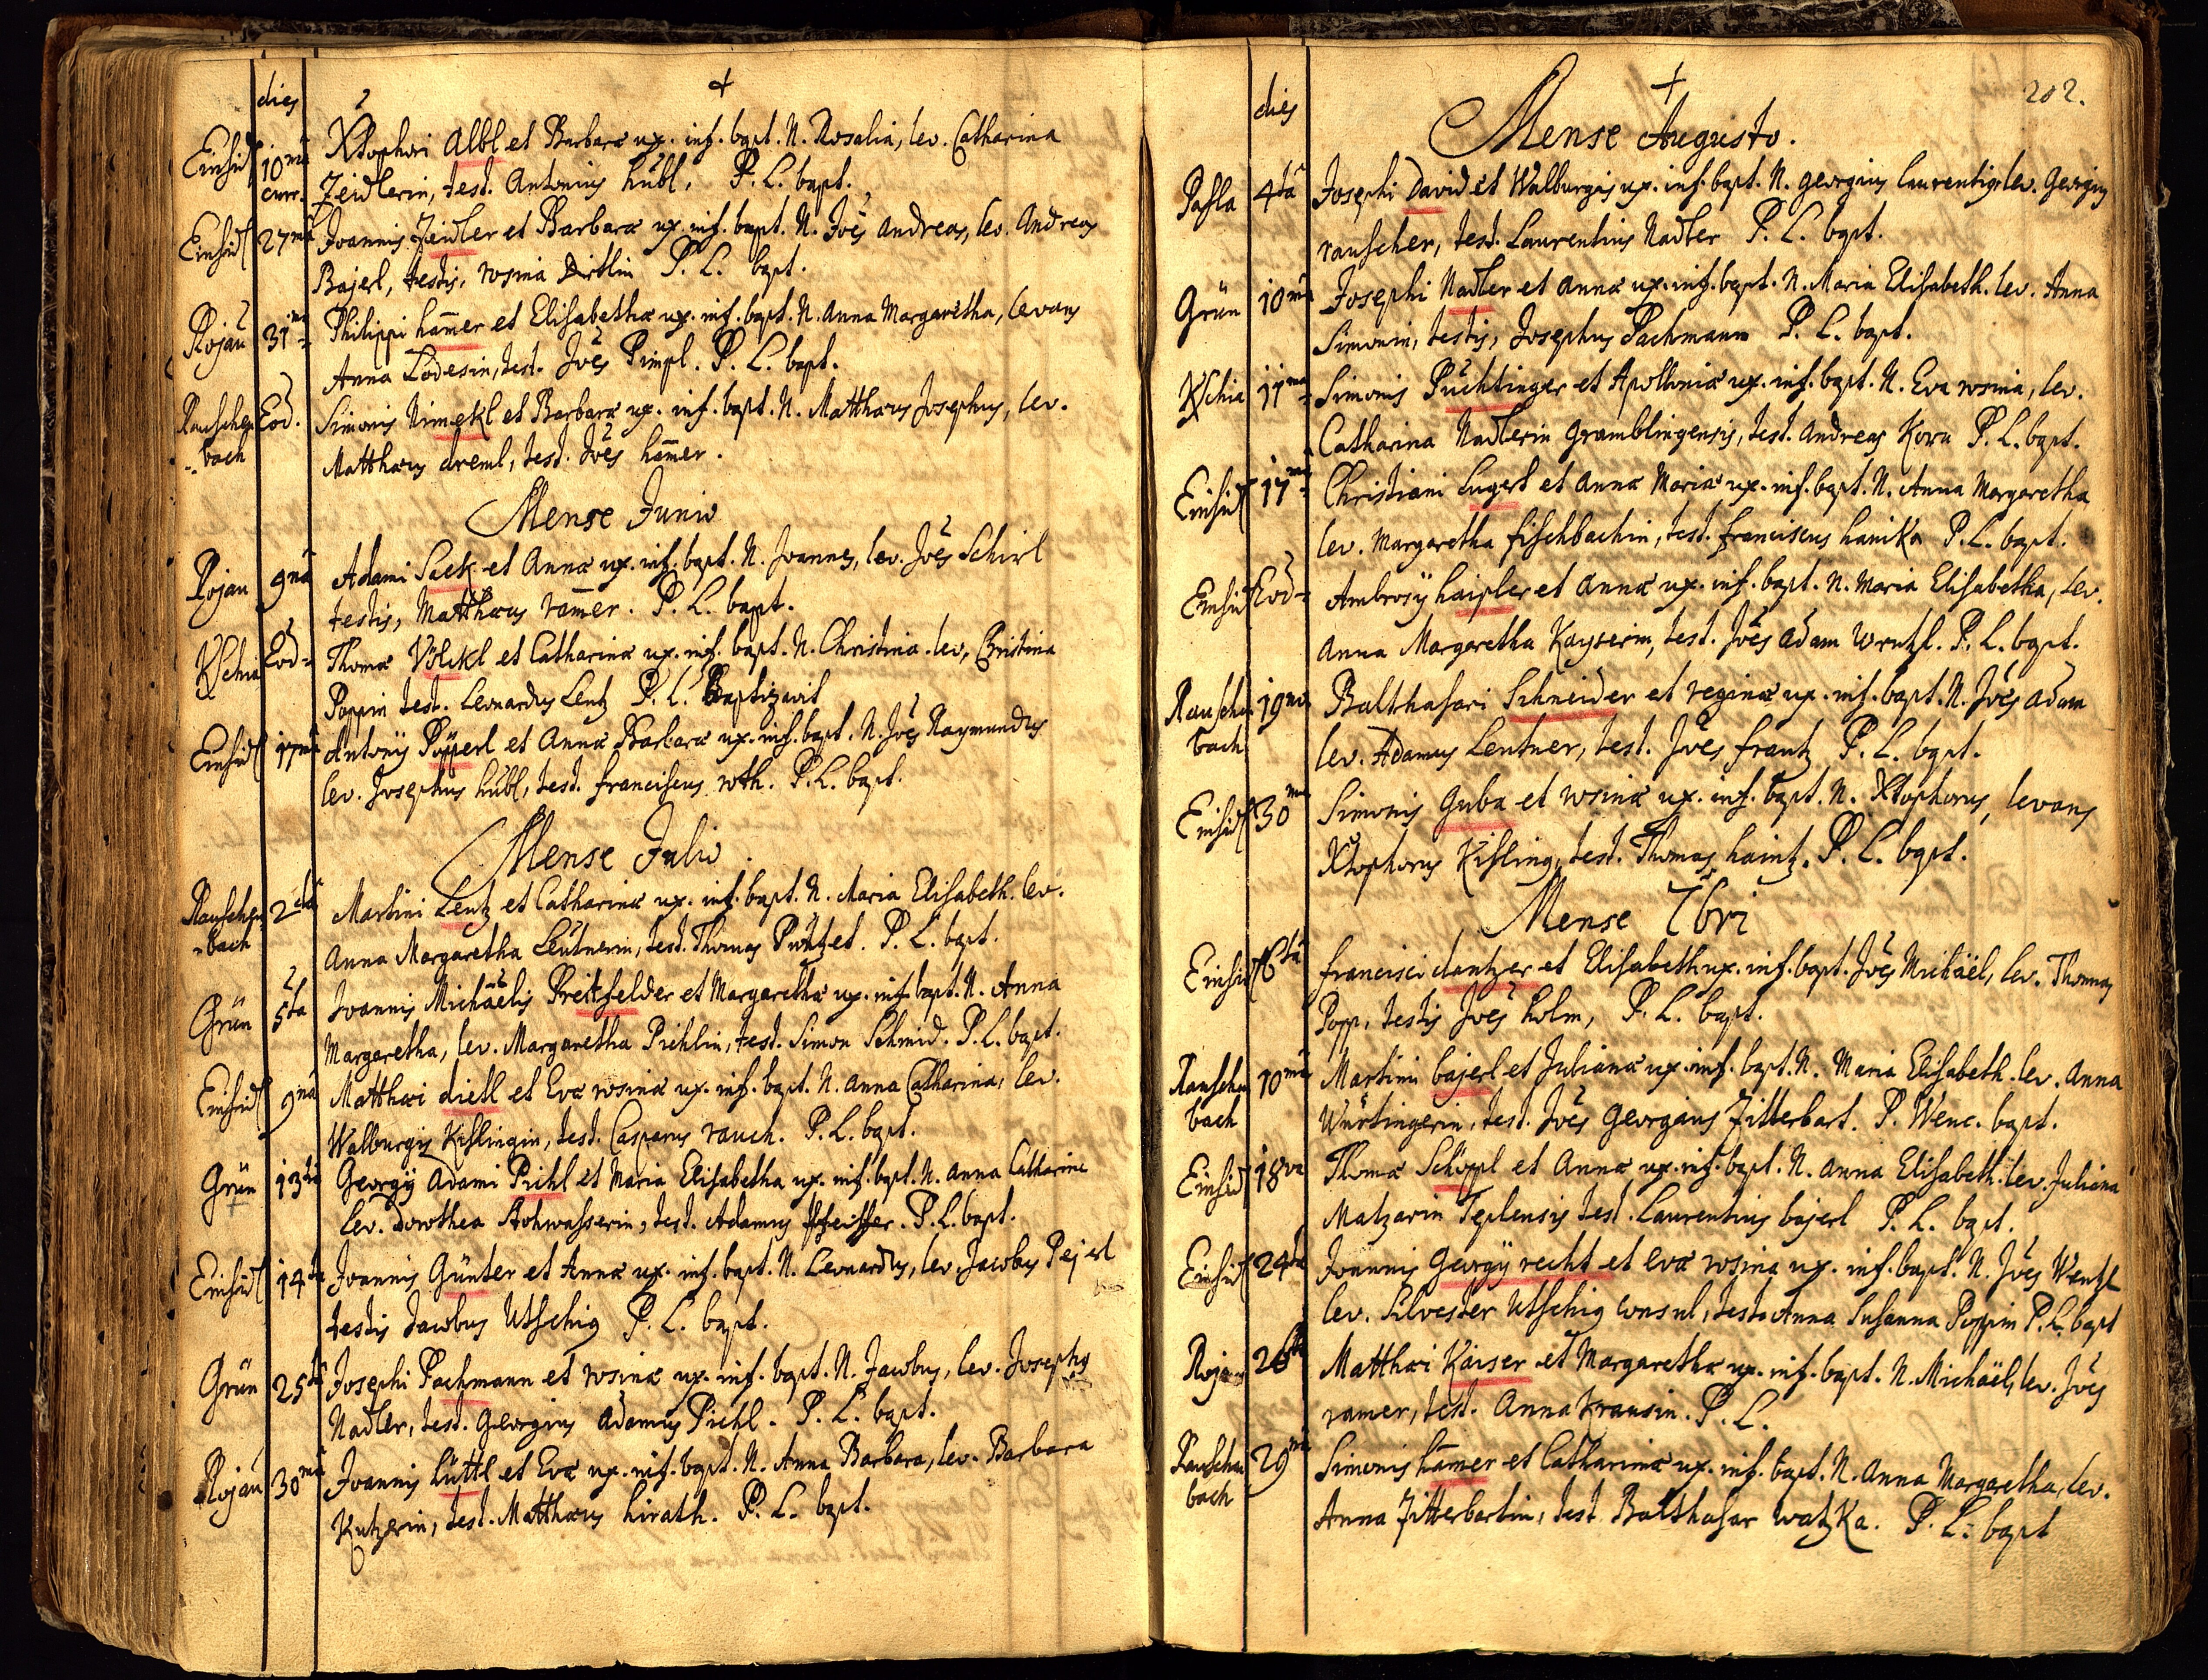 dies
Einsid 10mâ curr. Xtophori Albl et Barbara ux. inf. bapt. N. Rosalia, lev. Catharina
Zeidlerin, test. Antonius hübl, P. L. bapt.
Einsid 27mâ Joannis Zeidler et Barbara ux. inf. bapt. N. Joês Andreas, lev. Andreas
Bajerl, testis, rosina P. L. bapt.
Rojau 31mâ Philippi ham̄er et Elisabetha ux. inf. bapt. N. Anna Margaretha, levans
Anna Lodesin, test. Joês Pimpl. P. L. bapt.
Rauschenbach Eod. Simonis Nimekl et Barbara ux. inf. bapt. N. Matthæus Josephus, lev.
Matthæus dreml, test. Joês ham̄er.
Mense Junio
Rojau 9nâ Adami Sack et Anna ux. inf. bapt. N. Joannes, lev. Joês Schirl
testis, Matthæus ram̄er. P. L. bapt.
KSchin Eod= Thomæ Völckl et Catharina ux. inf. bapt. N. Christina. lev, Christina
Poppin test. Leonardus Lentz P. L. Baptizavit
Einsid 17mâ Antonÿ Popperl et Anna Barbara ux. inf. bapt. N. Joês Raymundus
lev. Josephus hübl, test. franciscus roth. P. L. bapt.
Mense Julio
Rauschenbach 2dâ Martini Lentz et Catharina ux. inf. bapt. N. Maria Elisabeth. lev.
Anna Margaretha Leütnerin, test. Thomas P. L. bapt.
Grün 5tâ Joannis Michäelis Preitfelder et Margaretha ux. inf. bapt. N. Anna
Margaretha, lev. Margaretha Pichlin, test. Simon Schmid. P. L. bapt.
Einsid 9nâ Matthæi dietl et Eva rosina ux. inf. bapt. N. Anna Catharina, lev.
Walburgis Kislingin, test. Casparus rauch. P. L. bapt.
Grün 13tiâ Georgÿ Adami Pichl et Maria Elisabetha ux. inf. bapt. N. Anna Catharina
lev. Dorothea Rohwasserin, test. Adamus Pfeiffer. P. L. bapt.
Einsid 14tâ Joannis Günter et Anna ux. inf. bapt. N. Leonardus, lev. Jacobus Pejerl
testis Jacobus Utschig P. L. bapt.
Grün 25tâ Josephi Pachmann et rosina ux. inf. bapt. N. Jacobus, lev. Josephus
Nadler, test. Georgius Adamus Pichl. P. L. bapt.
Rojau 30mâ Joannis Lüttl et Eva ux. inf. bapt. N. Anna Barbara, lev. Barbara
Kutzerin, test. Matthæus hirath. P. L. bapt.
202.
dies
Mense Augusto.
Pasla 4tâ Josephi David et Walburgis ux. inf. bapt. N. Georgius Laurentius lev. Georgius
rauscher, test. Laurentius Nadler P. L. bapt.
Grün 10mâ Josephi Nadler et Anna ux. inf. bapt. N. Maria Elisabeth. lev. Anna
Simonin, testis, Josephus Pachmann P. L. bapt.
KSchin 11mâ Simonis Puchtinger et Apollonia ux. inf. bapt. N. Eva rosina, lev.
Catharina Nadlerin Gramblingensis, test. Andreas Korn P. L. bapt.
Einsid 17mâ Christiani Lugert et Anna Maria ux. inf. bapt. N. Anna Margaretha
lev. Margaretha fischbachin, test. franciscus hanika P. L. bapt.
Einsid Eod= Ambrosÿ haipler et Anna ux. inf. bapt. N. Maria Elisabetha, lev.
Anna Margaretha Kayserin, test. Joês Adam P. L. bapt.
Rauschenbach 19nâ Balthasari Schneider et regina ux. inf. bapt. N. Joês Adam
lev. Adamus Lentner, test. Joês frantz P. L. bapt.
Einsid 30mâ Simonis Guba et rosina ux. inf. bapt. N. Xtophorus, levans
Xtophorus Kisling, test. Thomas haintz. P. L. bapt.
Mense 7bri
Einsid 6tâ francisci dantzer et Elisabeth ux. inf. bapt. Joês Michäel, lev. Thomas
Popp, testis Joês holm, P. L. bapt.
Rauschenbach 10mâ Martini bajerl et Juliana ux. inf. bapt. N. Maria Elisabeth. lev. Anna
Würtingerin, test. Joês Georgius Zitterbart. P. Wenc. bapt.
Einsid 18va Thomæ Schöppl et Anna ux. inf. bapt. N. Anna Elisabeth. lev. Juliana
Matzarin Teplensis test. Laurentius bajerl P. L. bapt.
Einsid 24tâ Joannis Georgÿ recht et Eva rosina ux. inf. bapt. N. Joês Wentzl
lev. Silvester Utschig consul, testis Anna Susanna Poppin P. L. bapt
Rojau 26tâ Matthæi Kaiser et Margaretha ux. inf. bapt. N. Michäel, lev. Joês
ramer, test. Anna Krausin. P. L.
Rauschenbach 29nâ Simonis ham̄er et Catharina ux. inf. bapt. N. Anna Margaretha, lev.
Anna Zitterbartin, test. Balthasar watzka. P. L. bapt